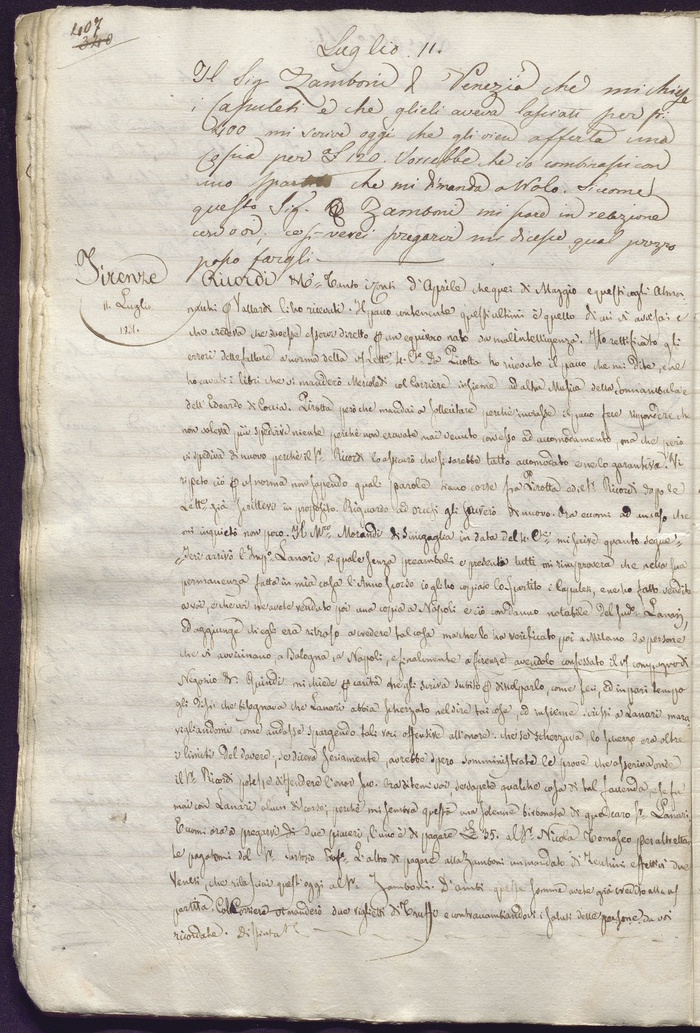 407
340
Luglio 11.
Il Sig Zamboni di Venezia che mi chiese
i Capuleti e che glieli aveva lasciati per fi:
400 mi scrive oggi che gli vien offerta una
Copia per £ 120. Vorrebbe che io combinassi con
uno spartito che mi dimanda a Nolo. Siccome
questo Sig. Zamboni mi pare in relazione
con voi, così verrei pregarvi mi diceste qual prezzo
posso fargli
Firenze
11. Luglio
Ricordi Mo = Tanto i Conti d'Aprile che quei di Maggio e questi cogli Almo
Vallardi li ho ricevuti. Il pacco contenente questi ultimi è quello di cui vi avvisai e
che credeva che dovesse essere diretto per un equivoco nato da mal'intelligenza. Ho rettificato gli
errori delle fatture a norma della Lettera. Da Pirotta ho ricevuto il pacco che mi Dite, e ne
ho cavati i libri che vi manderò Mercoledì col Corriere insieme ad altra Musica della Sonnambula e
dell'Edoardo di Coccia. Pirotta però che mandai a sollecitare perchè inviasse il pacco fece rispondere che
non voleva più spedirvi niente perchè non eravate mai venuto con esso ad accomodamento, ma che però
vi spediva di nuovo perchè il Sr. Ricordi lo assicurò che si sarebbe tutto accomodato e ne lo garantiva. Vi
ripeto ciò per norma non sapendo quali parole siano corse fra Pirotta ed il Sr. Ricordi dopo le
Lettere già scrittevi in proposito. Riguardo ad gli scriverò di nuovo. Ora eccomi ad un caso che
mi inquietò non poco. Il Mro. Morandi di Sinigaglia in data del 4. Cte. mi scrive quanto segue =
Jeri arrivò l'Impo. Lanari, il quale senza preamboli e presenti tutti mi rimproverò che nella sua
permanenza fatta in mia casa l'Anno scorso io gli ho copiato lo Spartito i Capuleti, e ne ho fatto vendita
a voi, e che voi ne avete venduto poi una copia a Napoli e ciò con danno notabile del sudo. Lanari,
ed aggiunge ch'egli era ritroso a credere tal cosa ma che lo ha verificato poi a Milano da persone
che si avvicinano a Bologna, a Napoli, e finalmente a Firenze avendolo confessato il
Negozio &. Quindi mi chiede per carità che gli scriva subito per discolparlo, come feci, ed in pari tempo
gli Dissi che bisognava che Lanari abbia scherzato nel dire tai cose, ed insieme scrissi a Lanari mara
vigliandomi come andasse spargendo tali voci offensive all'onore. che se scherzava, lo scherzo era oltre
i limiti del dovere, se diceva seriamente, avrebbe spero somministrate le prove che asseriva onde
il Sr. Ricordi potesse difendere l'onor suo. Ora ditemi voi se sapete qualche cosa di tal faccenda, e se fu
mai con Lanari alcun discorso; perchè mi sembra questa una solenne birbonata di quel caro Sr. Lanari.
Eccomi ora a pregarvi di due piaceri, l'uno è di pagare £ 35. al Sr. Nicola Tomaseo per altrettan
te pagatomi dal Sr. L'altro di pagare alla Zamboni un mandato di Zecchini effettivi due
Veneti, che rilasciai quest'oggi al Sr. Zamboni. D'ambi queste somme avete già credito alla
partita. Col Corriere vi manderò due viglietti di Truffi e contraccambiandovi i saluti delle persone da voi
ricordate.